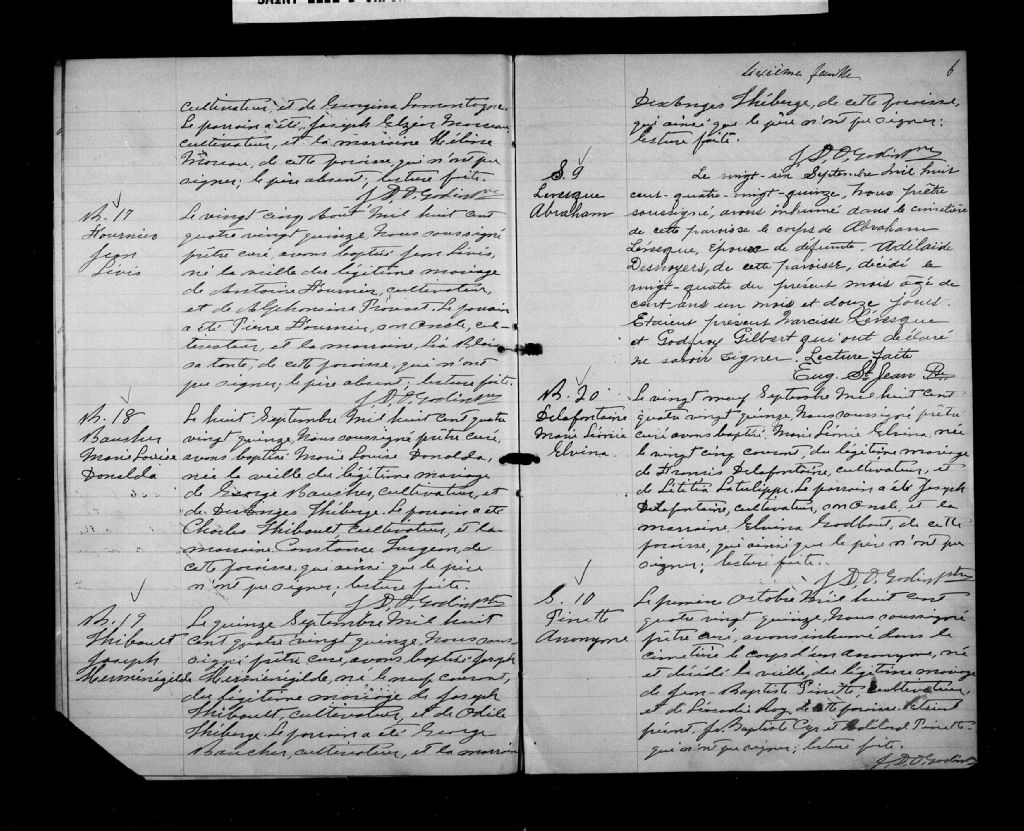 cultivateur, et de Georgina Lamontagne.
Le parrain a été, Joseph Elzéar Moreau,
cultivateur, et la marraine Hélène
Moreau, de cette paroisse, qui n'ont pu
signer; le père absent; lecture faite.
J. D. O. Godin ptre
B. 17
Fournier
Jean
Livis
Le vingt cinq Août mil huit cent
quatre vingt quinze Nous soussigné
prêtre curé, avons baptisé Jean Livis,
né la veille du légitime mariage
de Antoine Fournier, cultivateur,
et de Alphonsine Provost. Le parrain
a été Pierre Fournier, son oncle, cul-
tivateur, et la marraine,
sa tante, de cette paroisse, qui n'ont
pu signer; le père absent; lecture faite.
J. D. O. Godin ptre
B. 18
Baucher
Marie Louise
Donalda
Le huit Septembre mil huit cent quatre
vingt quinze, Nous soussigné prêtre curé,
avons baptisé Marie Louise Donalda,
née la veille du légitime mariage
de George Baucher, cultivateur, et
de DesAnges Théberge. Le parrain a été
Charles Thibault cultivateur, et la
marraine Constance Turgeon, de
cette paroisse, qui ainsi que le père
n'ont pu signer; lecture faite.
J. D. O. Godin ptre
B. 19
Thibault
Joseph
Herménégilde
Le quinze Septembre mil huit
cent quatre vingt quinze Nous sous
signé prêtre curé, avons baptisé Joseph
Herménégilde, né le neuf courant,
du légitime mariage de Joseph
Thibault, cultivateur, et de Odile
Théberge. Le parrain a été George
Baucher, cultivateur, et la marraine
Sixième feuille 6
DesAnges Théberge, de cette paroisse,
qui ainsi que le père n'ont pu signer;
lecture faite.
J. D. O. Godin ptre
S. 9
Levesque
Abraham
Le vingt-six Septembre mil huit
cent-quatre-vingt-quinze, Nous prêtre
soussigné, avons inhumé dans le cimetière
de cette paroisse le corps de Abraham
Lévesque, Époux de défunte Adélaïde
Desnoyers, de cette paroisse, décédé le
vingt-quatre du présent mois âgé de
cent ans un mois et douze jours.
Étaient présent Narcisse Lévesque
et Godfroy Gilbert qui ont déclaré
ne savoir signer. Lecture faite
Eug. St Jean Ptre
B. 20
Delafontaine
Marie Léonie
Elvina
Le vingt neuf Septembre mil huit cent
quatre vingt quinze Nous soussigné prêtre
curé avons baptisé Marie Léonie Elvina, née
le vingt cinq courant, du légitime mariage
de Francis Delafontaine, cultivateur, et
de Letitia Latulippe. Le parrain a été Joseph
Delafontaine, cultivateur, son oncle, et la
marraine Elvina Godbout, de cette
paroisse, qui ainsi que le père n'ont pu
signer; lecture faite.
J. D. O. Godin ptre
S. 10
Pinette
Anonyme
Le premier Octobre mil huit cent
quatre vingt quinze, Nous soussigné
prêtre curé, avons inhumé dans le
cimetière le corps d'un Anonyme, né
et décédé la veille, du légitime mariage
de Jean-Baptiste Pinette, cultivateur,
et de Léocadie Roy, de cette paroisse. Étaient
présent, Js. Baptiste Cyr et Pinette
qui n'ont pu signer; lecture faite.
J. D. O. Godin ptre